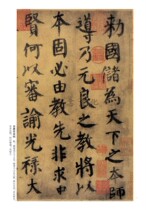 勅國儲為天下之本師
導乃元良之教將以
本固必由教先非求中
賢何以審諭光祿大